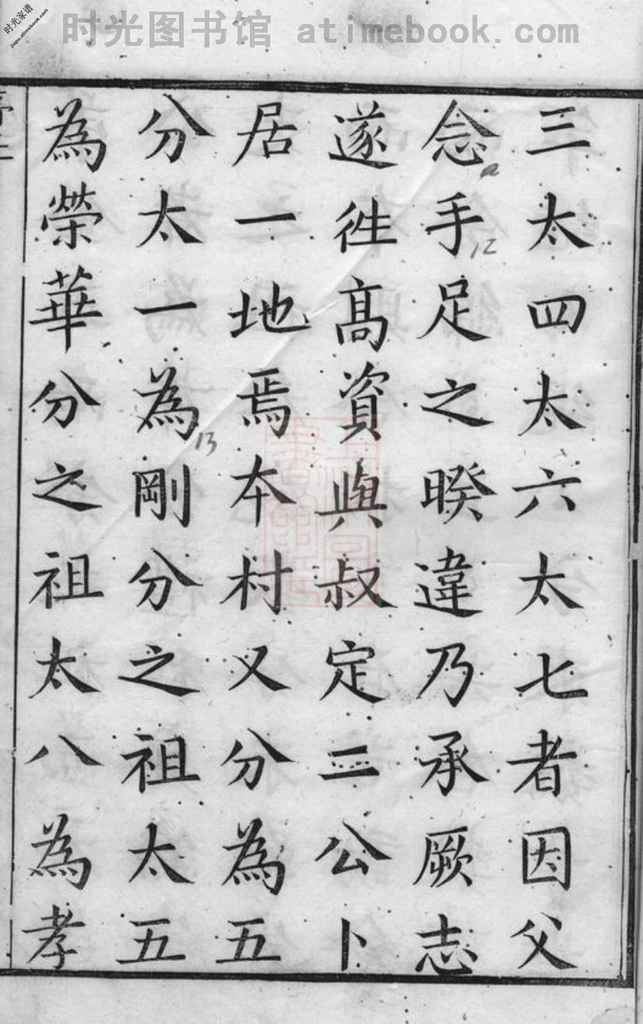 时光图书馆 atimebook.com
时光家谱
三太四太六太七者因父
念手足之暌違乃承厥志
遂徃髙資與叔定二公卜
居一地焉本村又分為五
分太一為剛分之祖太五
為榮華分之祖太八為孝
12
13